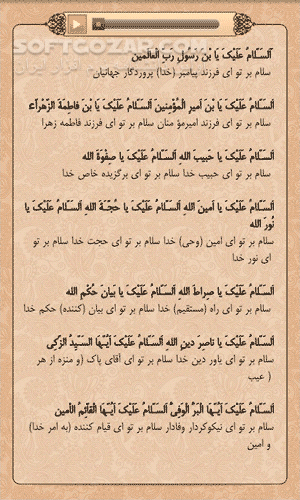 SOFTCOZAR.COM
اَلسَّلامُ عَلَيْكَ يَا بْنَ رَسُولِ رَبِّ الْعالَمينَ
سلام بر تو ای فرزند پیامبر (خدا) پروردگار جهانیان
اَلسَّلامُ عَلَيْكَ يَا بْنَ اَميرِ الْمُؤْمِنينَ اَلسَّلامُ عَلَيْكَ يَا بْنَ فاطِمَةَ الزَّهْرآءِ
سلام بر تو ای فرزند امیرمؤ منان سلام بر تو ای فرزند فاطمه زهرا
اَلسَّلامُ عَلَيْكَ يا حَبيبَ اللهِ اَلسَّلامُ عَلَيْكَ يا صِفْوَةَ اللهِ
سلام بر تو ای حبیب خدا سلام بر تو ای برگزیده خاص خدا
اَلسَّلامُ عَلَيْكَ يا اَمينَ اللهِ اَلسَّلامُ عَلَيْكَ يا حُجَّةَ اللهِ اَلسَّلامُ عَلَيْكَ يا
نُورَ اللهِ
سلام بر تو ای امین (وحی) خدا سلام بر تو ای حجت خدا سلام بر تو
ای نور خدا
اَلسَّلامُ عَلَيْكَ يا صِراطَ اللهِ اَلسَّلامُ عَلَيْكَ يا بَيانَ حُكْمِ اللهِ
سلام بر تو ای راه (مستقیم) خدا سلام بر تو ای بیان (کننده) حکم خدا
اَلسَّلامُ عَلَيْكَ يا ناصِرَ دينِ اللهِ اَلسَّلامُ عَلَيْكَ اَيُّهَا السَيِّدُ الزَّكِىُّ
سلام بر تو ای یاور دین خدا سلام بر تو ای آقای پاک (و منزه از هر
عیب )
اَلسَّلامُ عَلَيْكَ اَيُّهَا الْبَرُّ الْوَفِىُّ اَلسَّلامُ عَلَيْكَ اَيُّهَا الْقآئِمُ الْأَمينُ
سلام بر تو ای نیکوکردار وفادار سلام بر تو ای قیام کننده (به امر خدا)
و امین